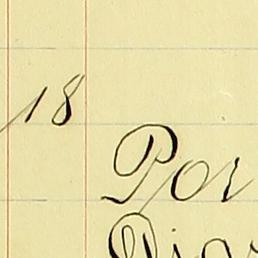 18
Por